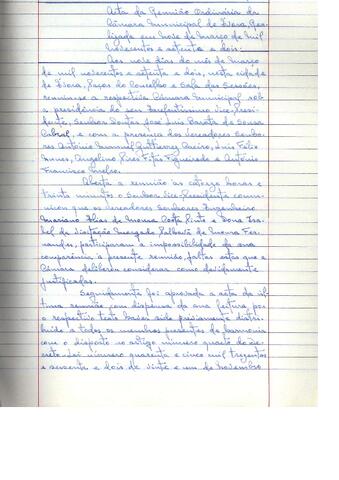 Acta da Reunião Ordinária da
Câmara Municipal de Évora, Rea-
lizada em nove de Março de mil
novecentos e setenta e dois:
Aos nove dias do mês de Março
de mil novecentos e setenta e dois, nesta cidade
de Évora, Paços do Concelho e Sala das Sessões,
reuniu-se a respectiva Câmara Municipal sob
a presidência do seu Excelentíssimo Vice-Presi-
dente, Senhor Doutor José Luis Barata de Sousa
Cabral, e com a presença dos Vereadores Senho-
res António Samuel Gutierrez Queiro, Luis Felix
Nunes, Angelino Pires Fitas Figueiredo e António
Francisco
Aberta a reunião às catorze horas e
trinta minutos o Senhor Vice-Presidente comu-
nicou que os Vereadores Senhores Engenheiro
Mariano Elias de Moura Costa Pinto e Dona Isa-
bel da Visitação Morgado Palhavã de Moura Fer-
nandes, participaram a impossibilidade da sua
comparência à presente reunião, faltas estas que a
Câmara deliberou considerar como devidamente
justificadas.
Seguidamente foi aprovada a acta da úl-
tima reunião com dispensa da sua leitura por
o respectivo texto haver sido previamente distri-
buído a todos os membros presentes de harmonia
com o disposto no artigo número quarto do De-
creto-Lei número quarenta e cinco mil trezentos
e sessenta e dois de vinte e um de Novembro